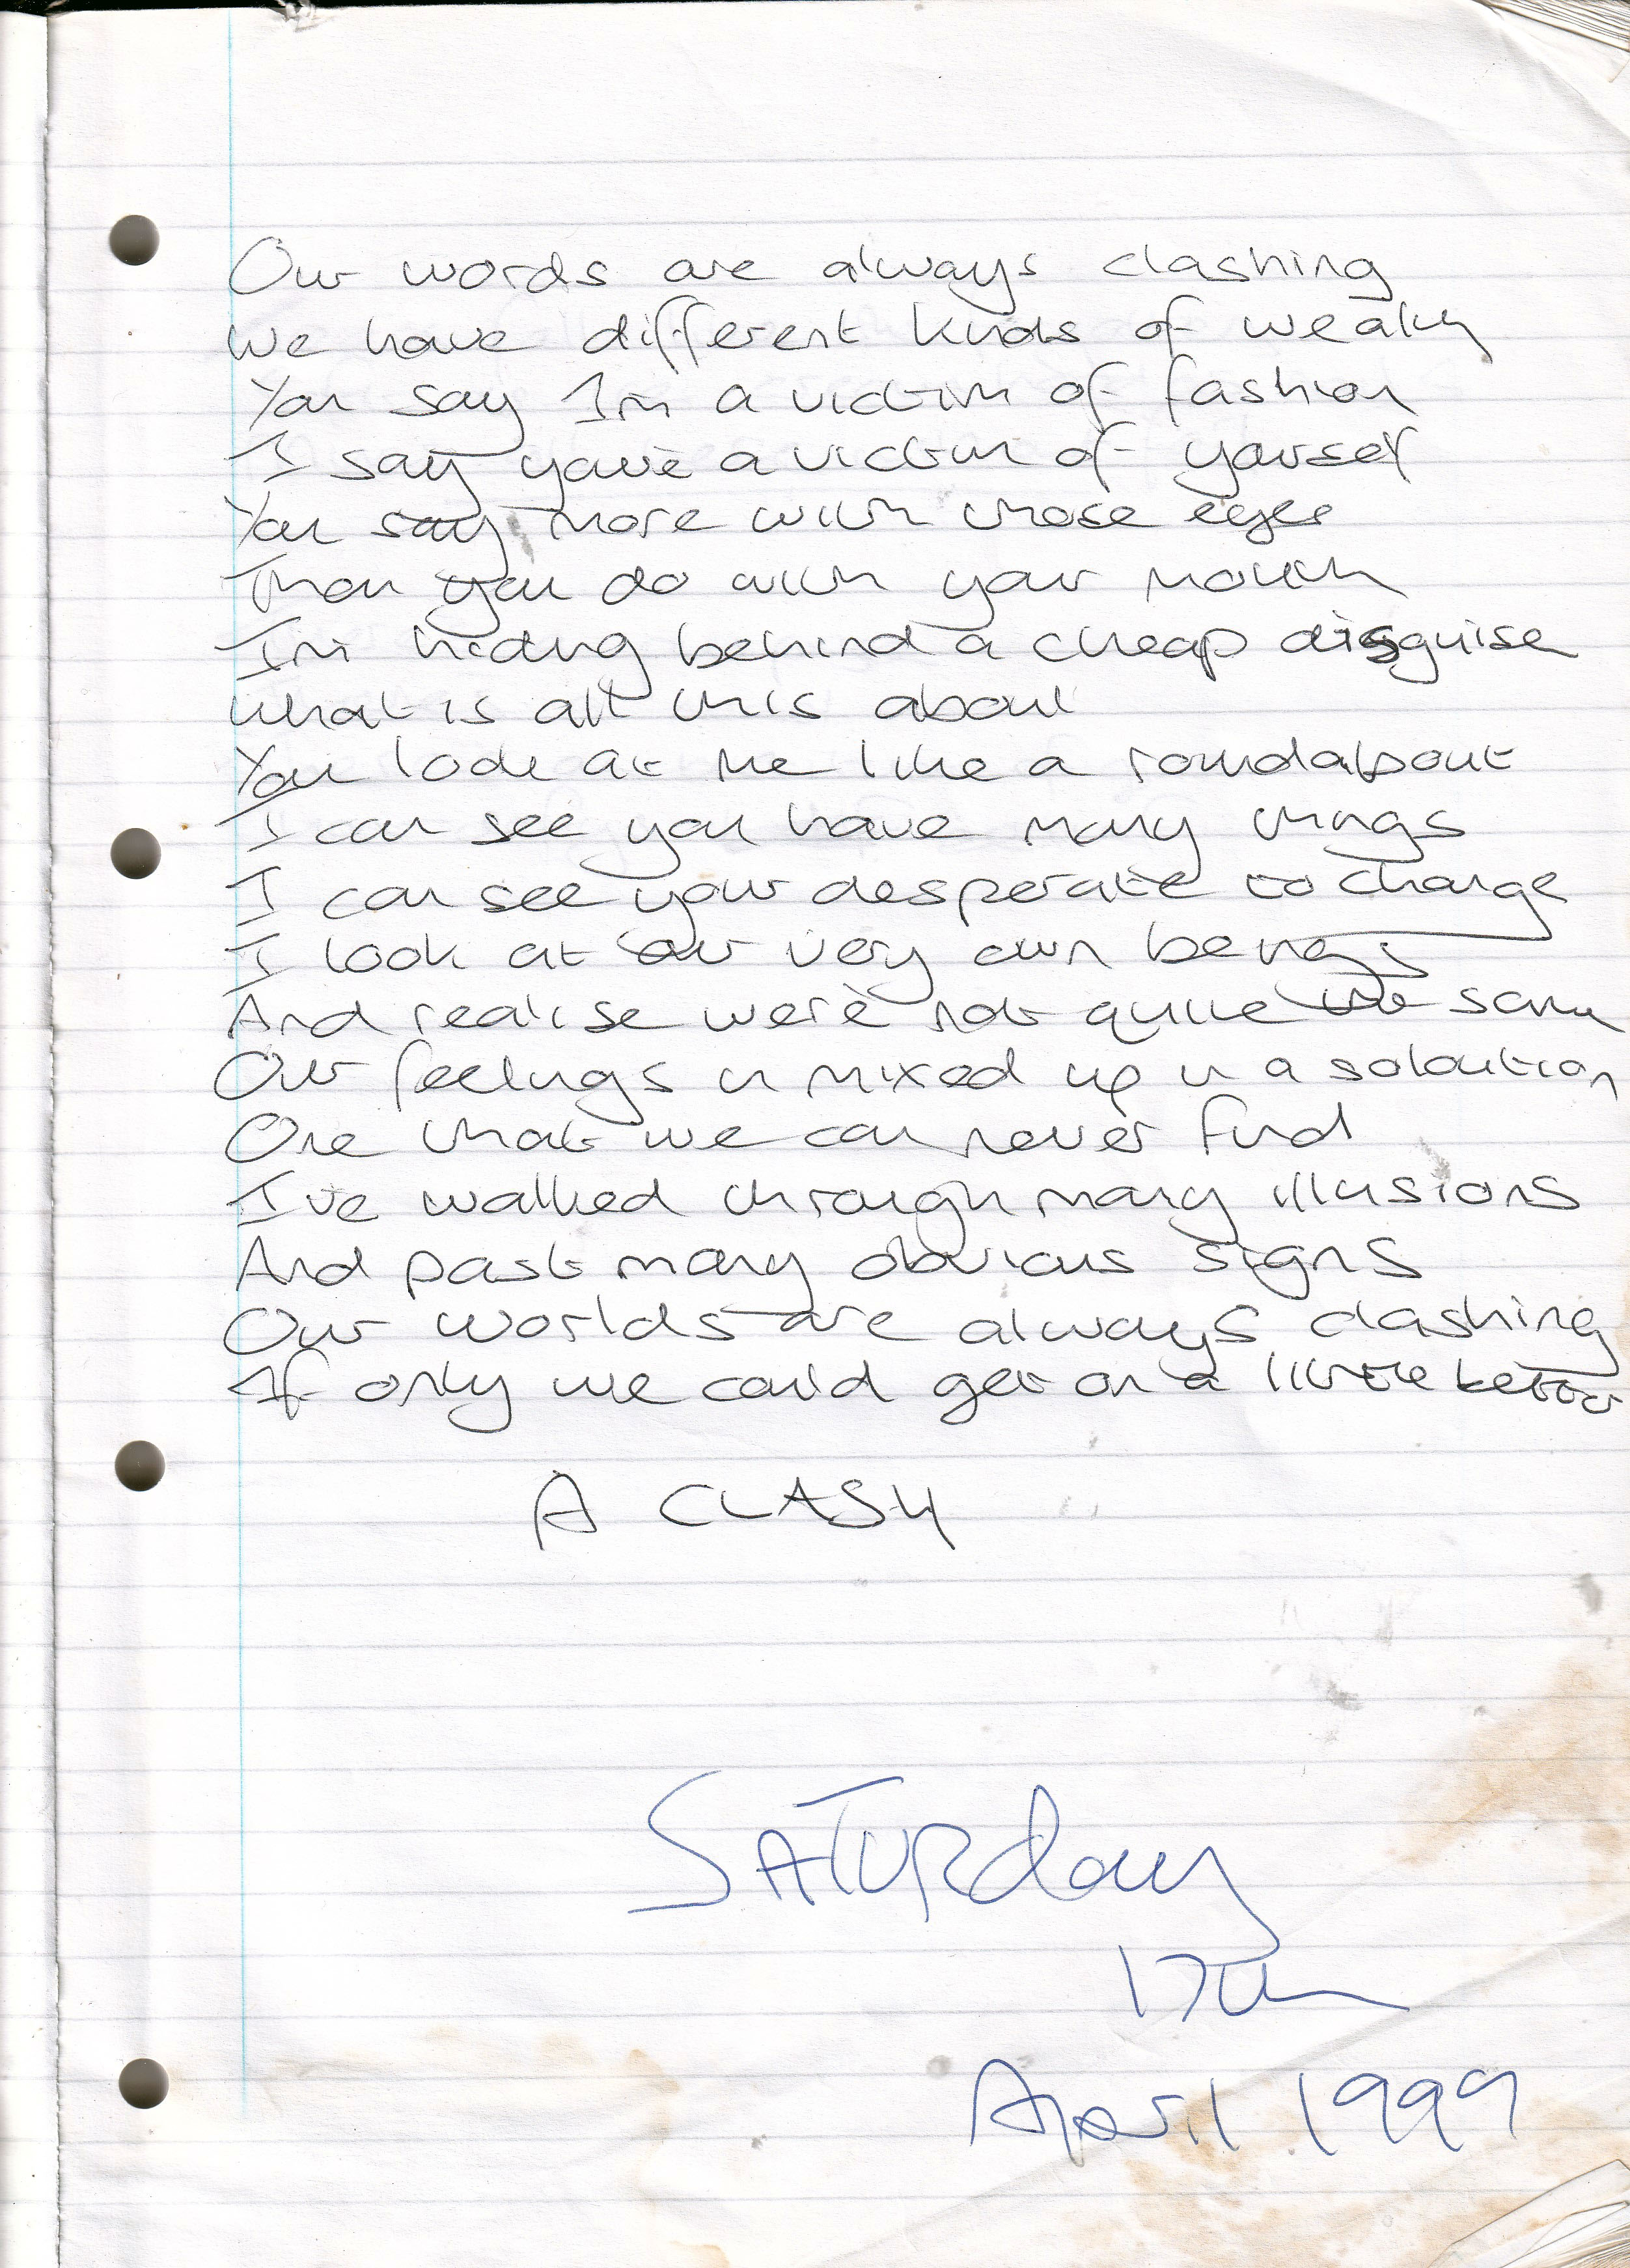 Our words are always clashing
We have different kinds of wealth
You say I'm a victim of fashion
I say you're a victim of yourself
You say more with those eyes
Than you do with your mouth
I'm hiding behind a cheap disguise
What is all this about
You look at me like a roundabout
I can see you have many things
I can see your desperate to change
I look at our very own beings
And realise we're not quite the same
Our feelings in mixed up in a soloution
One that we can never find
I've walked through many illusions
And past many obvious signs
Our worlds are always clashing
If only we could get on a little better
A CLASH
SATURday
17th
April 1999